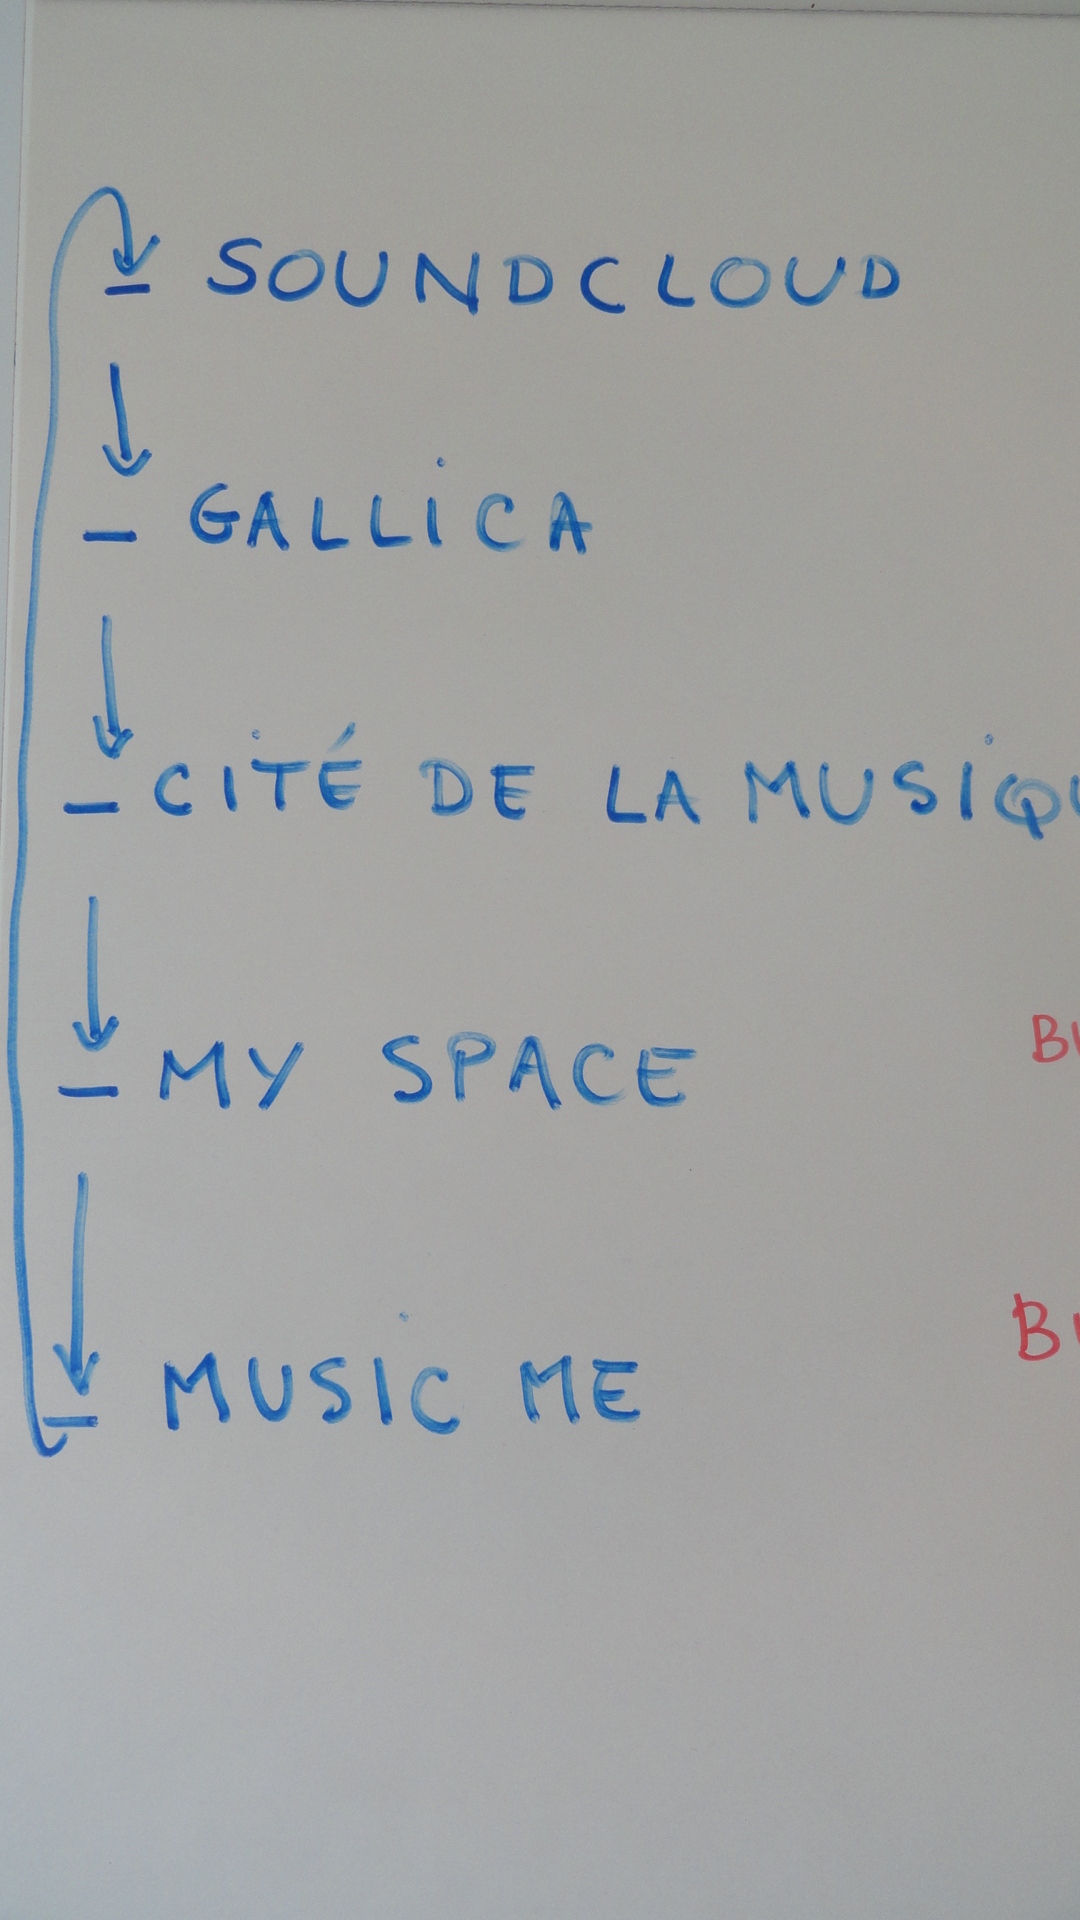 - SOUNDCLOUD
- GALLiCA
- CiTÉ DE LA MUSiQU
- MY SPACE
- MUSiC ME